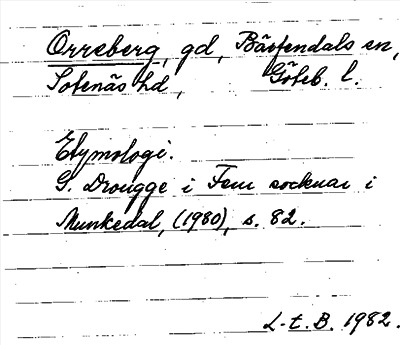 Orreberg, gd, Bärfendals sn,
Sotenäs hd, Göteb. l.
Etymologi.
G. Drougge i Fem socknar i
Munkedal, (1980), s. 82.
L-t. B. 1982.